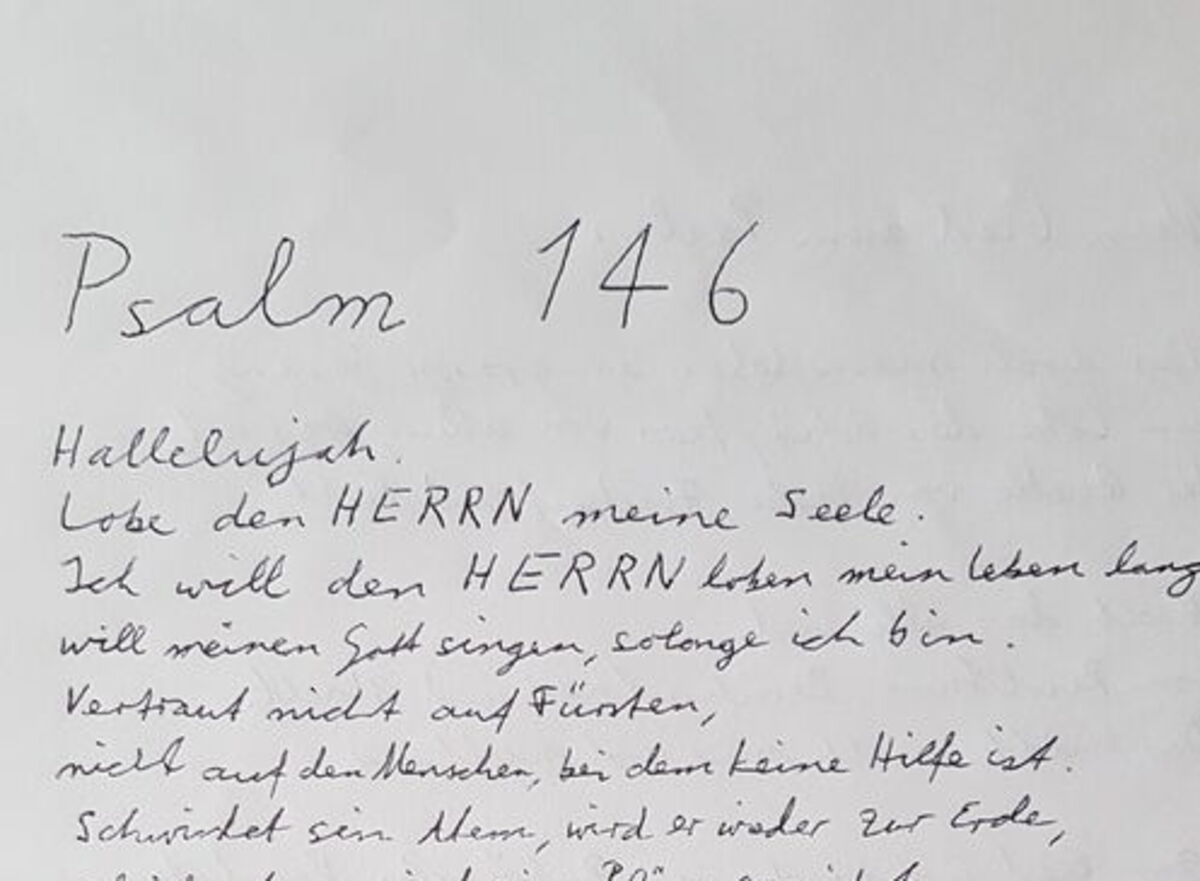 Psalm 146
Hallelujah.
Lobe den HERRN meine Seele.
Ich will den HERRN loben mein Leben lang
will meinen Gott singen, solange ich bin.
Vertraut nicht auf Fürsten,
nicht auf den Menschen, bei dem keine Hilfe ist.
Schwindet sein Atem, wird er wieder zur Erde,